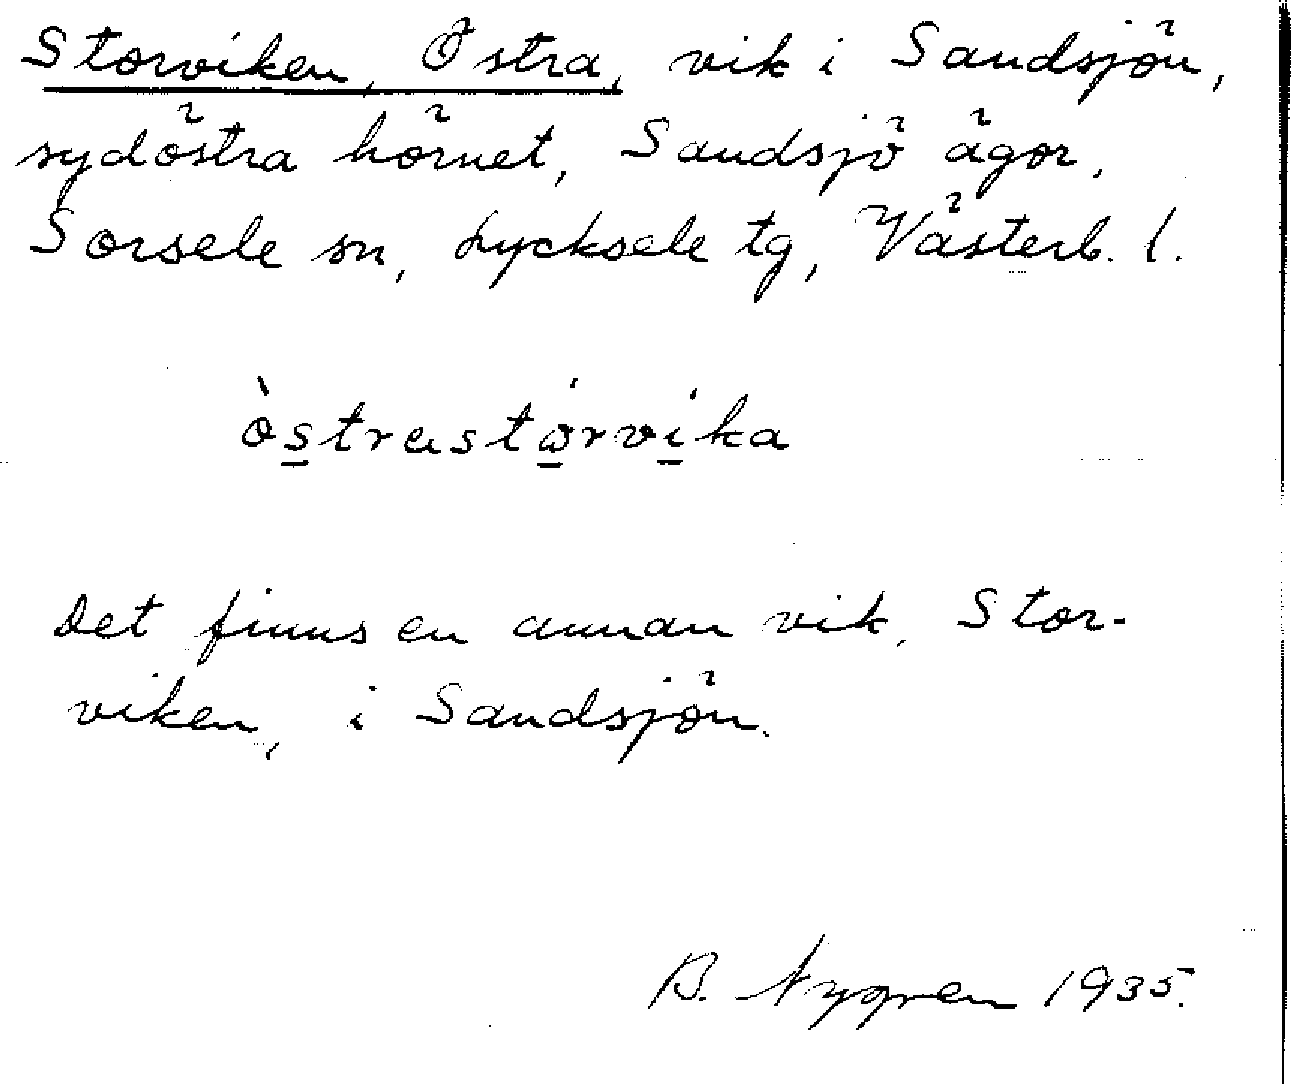 Storviken, Östra, vik i Sandsjön,
sydöstra hörnet, Sandsjö ägor,
Sorsele sn, Lycksele tg, Västerb. l.
òstrastórvíka
Det finns en annan vik, Stor-
viken, i Sandsjön.
B. Nygren 1935.